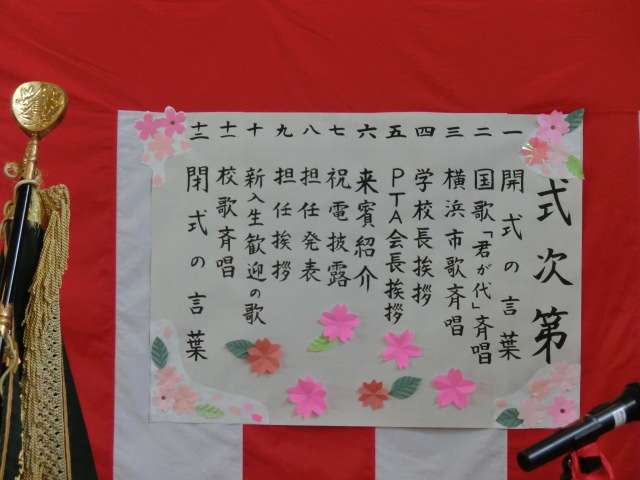 式次第
一 開式の言葉
二 国歌「君が代」斉唱
三 横浜市歌斉唱
四 学校長挨拶
五 PTA会長挨拶
六 来賓紹介
七 祝電披露
八 担任発表
九 担任挨拶
十 新入生歓迎の歌
十一 校歌斉唱
十二 閉式の言葉